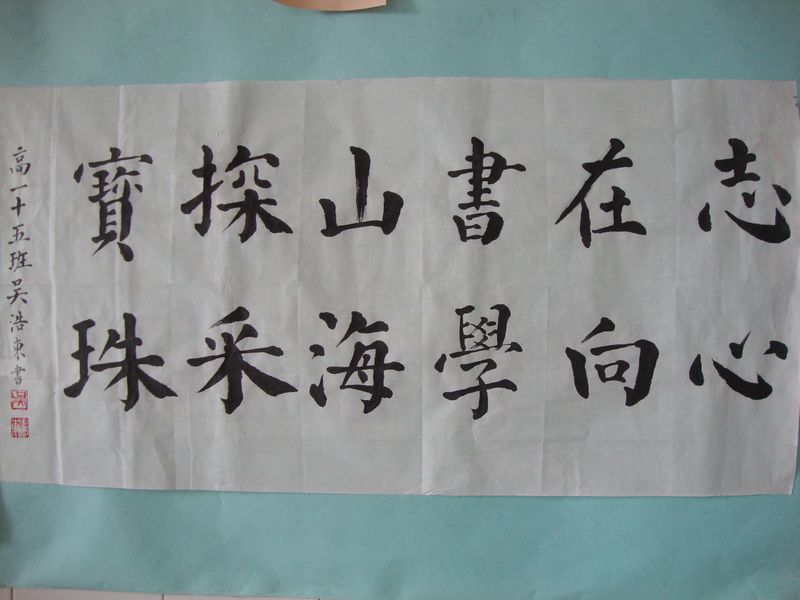 志在書山探寶
心向學海采珠
高一十五班吴浩東書